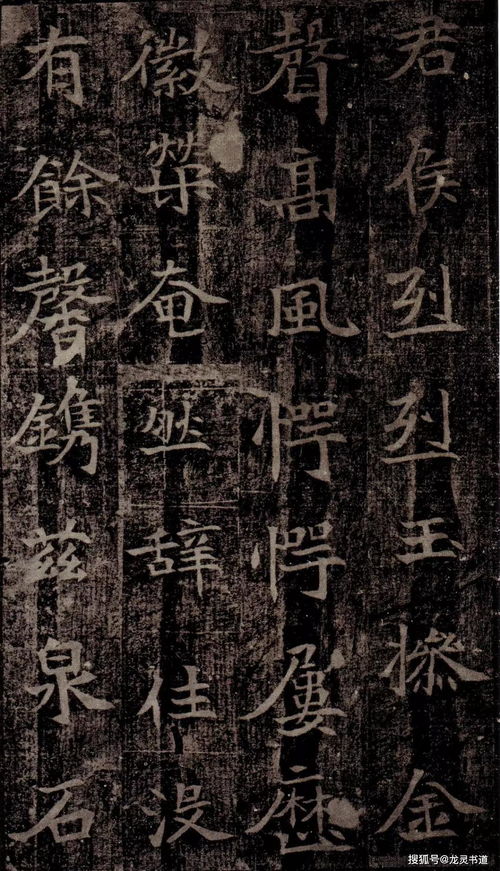 君侯烈烈玉摻金
聲高風愕愕屢歷
徽榮奄然辞住没
有餘馨鐫茲泉石
搜狐号@龙灵书道